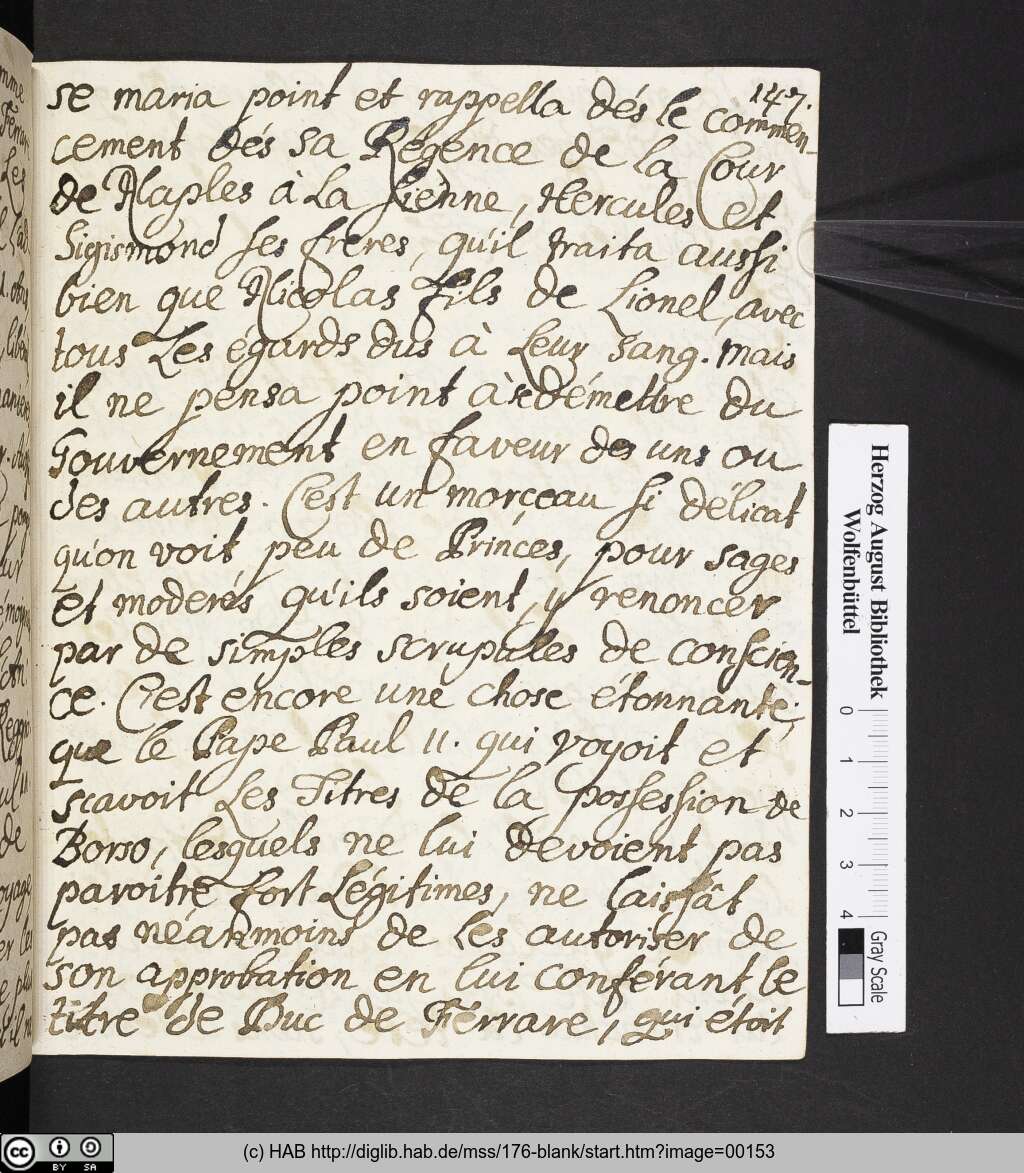 147.
se maria point et rappella dés le commen-
cement dés sa Régence de la Cour
de Naples à La sienne, Hercules et
Sigismond ses freres, qu'il traita aussi
bien que Nicolas Fils de Lionel, avec
tous Les égards dus à Leur sang. mais
il ne pensa point à se démettre du
Gouvernement en faveur des uns ou
des autres. C'est un morçeau si délicat
qu'on voit peu de Princes, pour sages
et moderés qu'ils soient, y renoncer
par de simples scrupules de conscien-
ce. C'est encore une chose étonnante,
que le Pape Paul II. qui voyoit et
scavoit Les Titres de la possession de
Borso, lesquels ne lui devoient pas
paroitre fort Légitimes, ne laissât
pas néanmoins de Les autoriser de
son approbation en lui conférant le
titre de Duc de Ferrare, qui étoit
Herzog August Bibliothek
Wolfenbüttel
0 1 2 3 4
Gray Scale
cc BY SA
(c) HAB http://diglib.hab.de/mss/176-blank/start.htm?image=00153